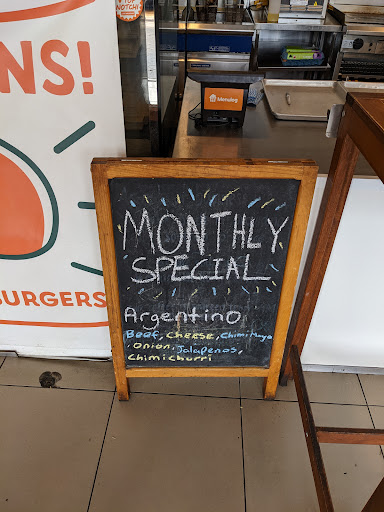 NS!
BURGERS
TOP NOTCH!
Menulog
MONTHLY
SPECIAL
Argentino
Beef, cheese, chimi Mayo
, onion, Jalapenos,
chimichurri